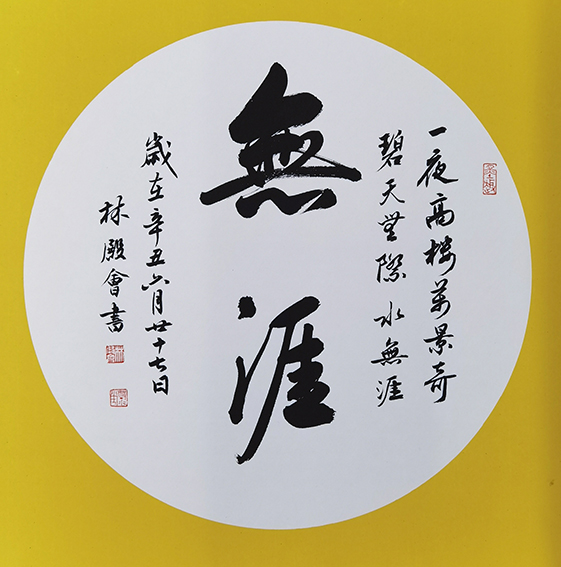 一夜高楼萬景奇
碧天無際水無涯
無涯
歲在辛丑六月廿十七日
林殿會書